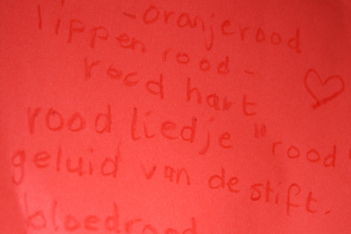 - oranjerood
lippen rood -
rood hart
rood liedje "rood"
geluid van de stift.
bloedrood